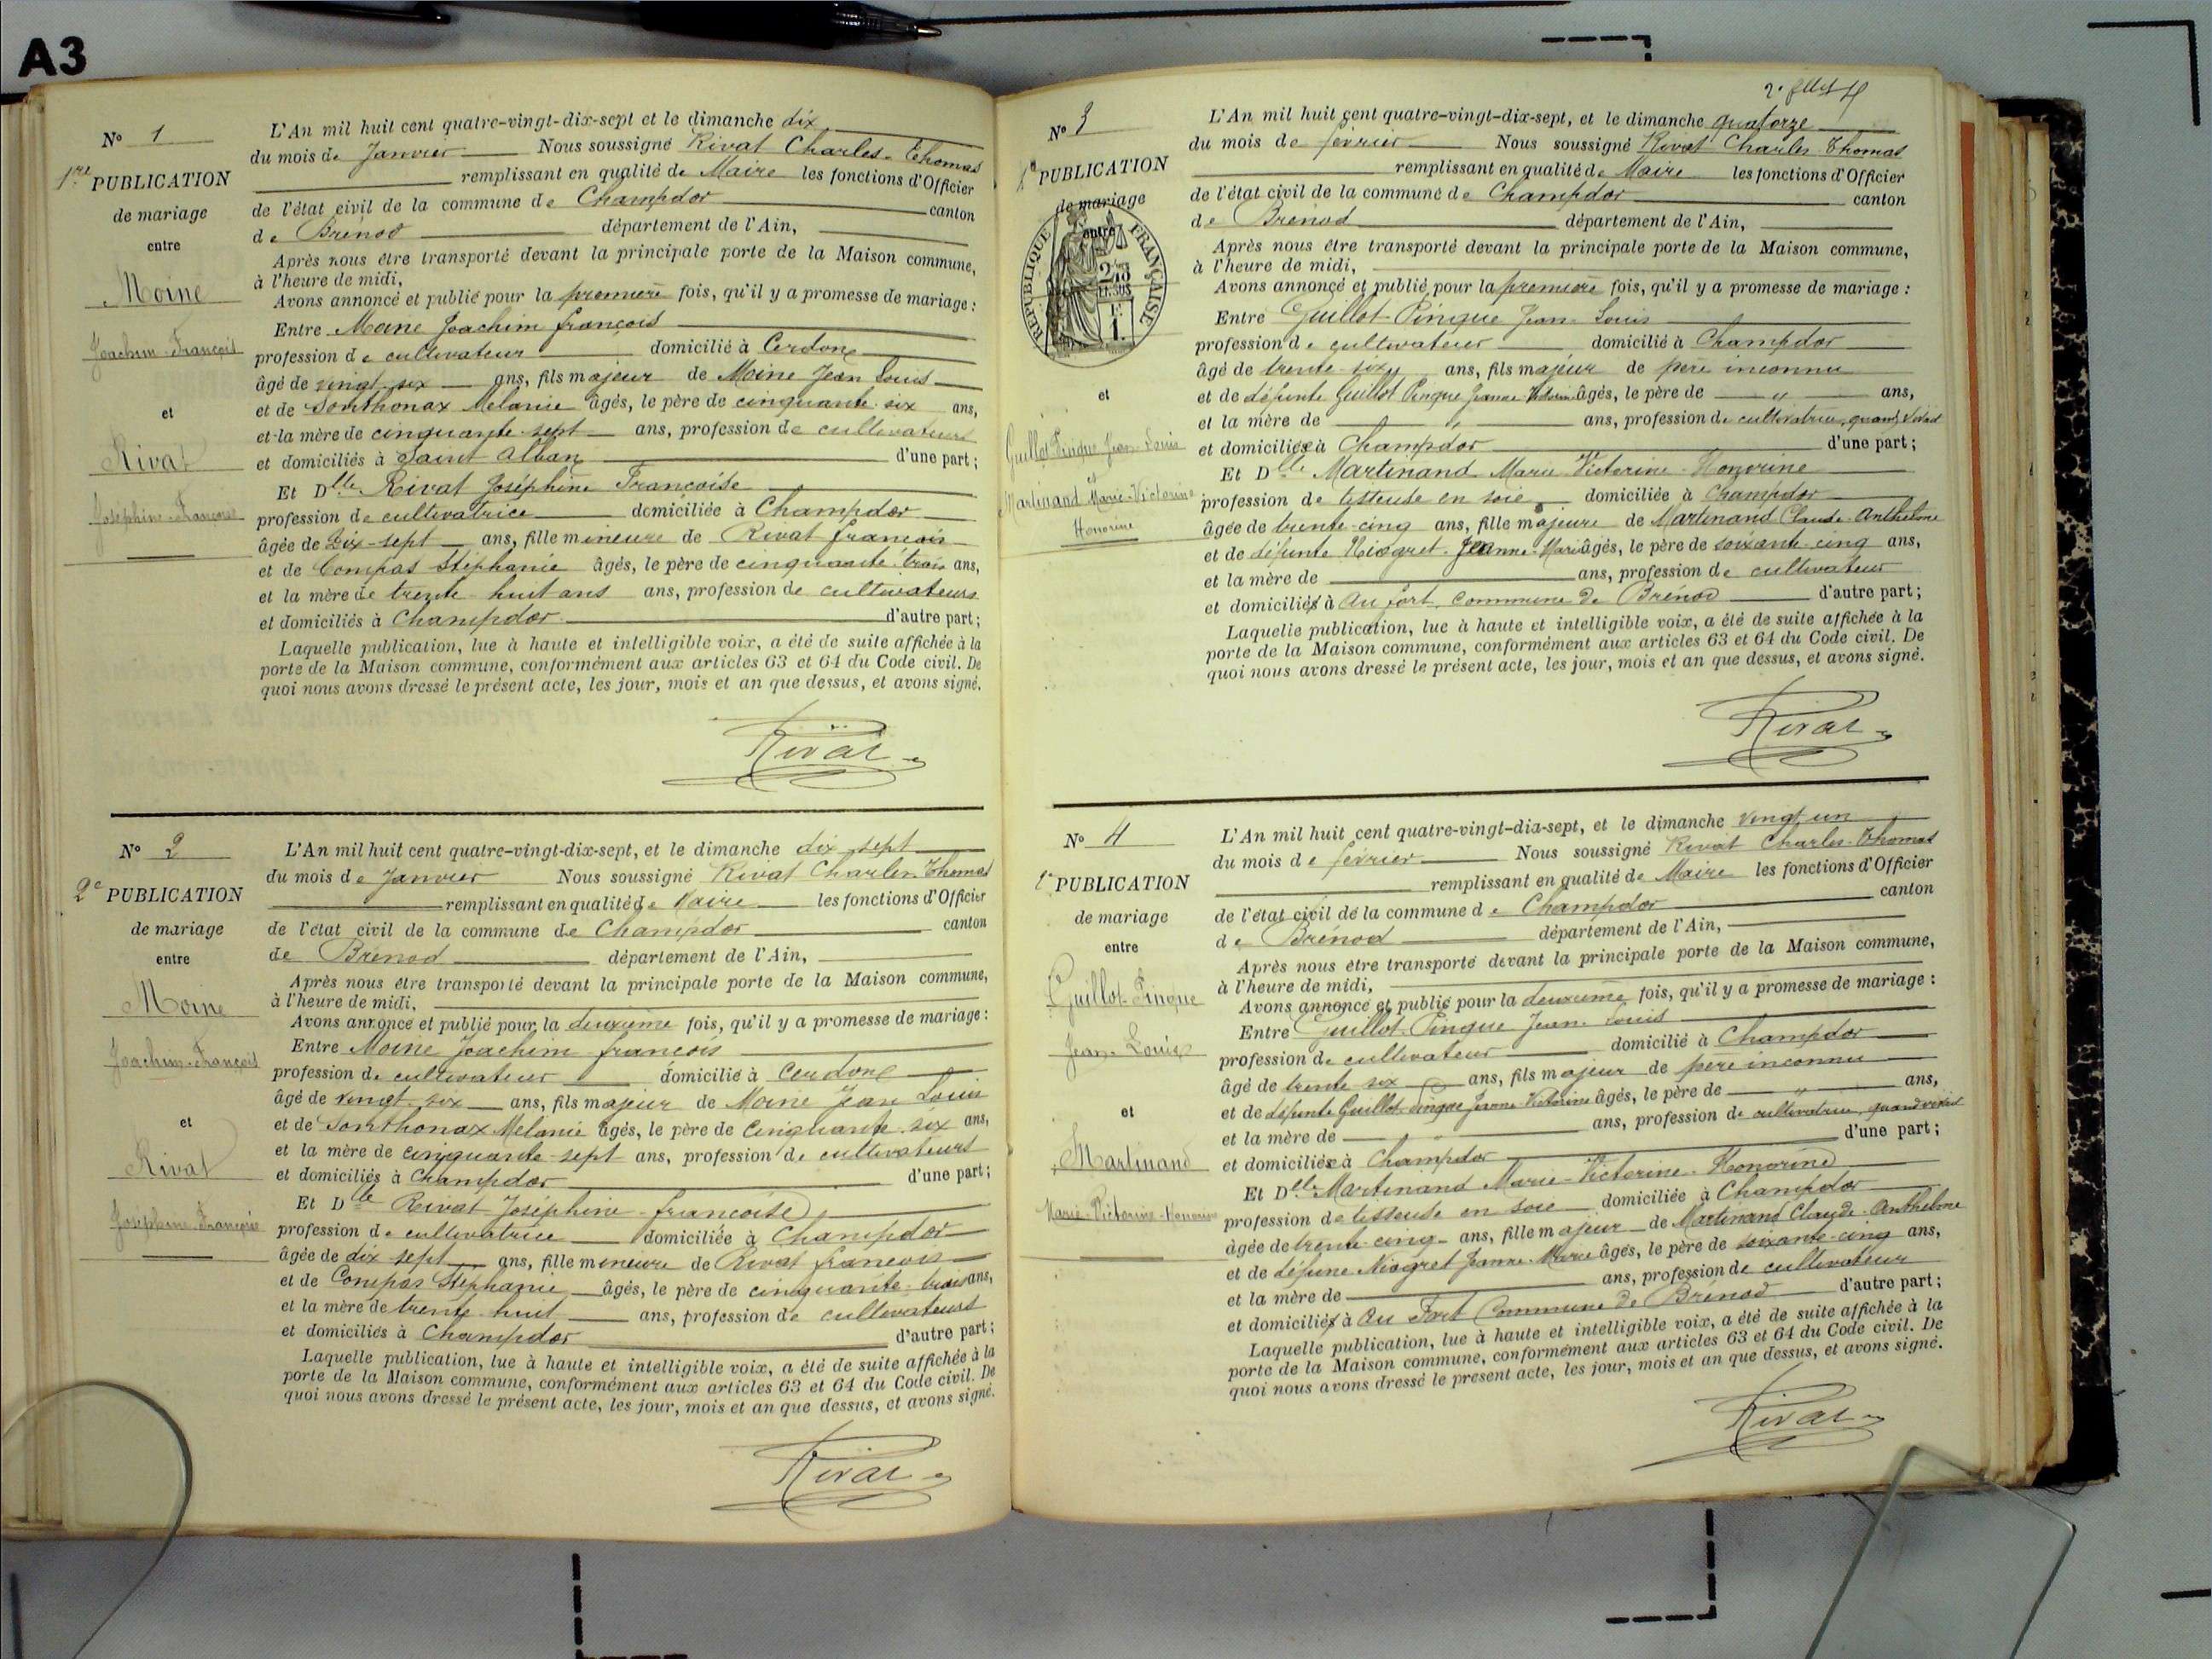 A3
N° 1
1re PUBLICATION
de mariage
entre
Moine
Joachim-François
et
Rivat
Joséphine-Françoise
L'An mil huit cent quatre-vingt-dix-sept et le dimanche dix
du mois de Janvier Nous soussigné Rivat Charles-Thomas
remplissant en qualité de Maire les fonctions d'Officier
de l'état civil de la commune de Champdor canton
de Brénod département de l'Ain,
Après nous être transporté devant la principale porte de la Maison commune,
à l'heure de midi,
Avons annoncé et publié pour la première fois, qu'il y a promesse de mariage :
Entre Moine Joachim françois
profession de cultivateur domicilié à Cerdon
âgé de vingt-six ans, fils majeur de Moine Jean Louis
et de Sonthonax Mélanie âgés, le père de cinquante-six ans,
et la mère de cinquante-sept ans, profession de cultivateurs
et domiciliés à Saint Alban d'une part ;
Et Dlle Rivat Joséphine Françoise
profession de cultivatrice domiciliée à Champdor
âgée de Dix-sept ans, fille mineure de Rivat françois
et de Compas Stéphanie âgés, le père de cinquante-trois ans,
et la mère de trente-huit ans ans, profession de cultivateurs
et domiciliés à Champdor d'autre part ;
Laquelle publication, lue à haute et intelligible voix, a été de suite affichée à la
porte de la Maison commune, conformément aux articles 63 et 64 du Code civil. De
quoi nous avons dressé le présent acte, les jour, mois et an que dessus, et avons signé.
Rivat
N° 2
2e PUBLICATION
de mariage
entre
Moine
Joachim-François
et
Rivat
Joséphine-Françoise
L'An mil huit cent quatre-vingt-dix-sept, et le dimanche dix sept
du mois de Janvier Nous soussigné Rivat Charles-Thomas
remplissant en qualité de Maire les fonctions d'Officier
de l'état civil de la commune de Champdor canton
de Brénod département de l'Ain,
Après nous être transporté devant la principale porte de la Maison commune,
à l'heure de midi,
Avons annoncé et publié pour la deuxième fois, qu'il y a promesse de mariage :
Entre Moine Joachim françois
profession de cultivateur domicilié à Cerdon
âgé de vingt-six ans, fils majeur de Moine Jean Louis
et de Sonthonax Mélanie âgés, le père de cinquante-six ans,
et la mère de cinquante-sept ans, profession de cultivateurs
et domiciliés à Champdor d'une part ;
Et Dlle Rivat Joséphine-françoise
profession de cultivatrice domiciliée à Champdor
âgée de dix sept ans, fille mineure de Rivat françois
et de Compas Stéphanie âgés, le père de cinquante-trois ans,
et la mère de trente-huit ans, profession de cultivateurs
et domiciliés à Champdor d'autre part ;
Laquelle publication, lue à haute et intelligible voix, a été de suite affichée à la
porte de la Maison commune, conformément aux articles 63 et 64 du Code civil. De
quoi nous avons dressé le présent acte, les jour, mois et an que dessus, et avons signé.
Rivat
N° 3
PUBLICATION
de mariage
entre
REPUBLIQUE FRANÇAISE
et
Guillot Pingue Jean-Louis
et
Martinand Marie-Victorine
Honorine
L'An mil huit cent quatre-vingt-dix-sept, et le dimanche quatorze
du mois de février Nous soussigné Rivat Charles-Thomas
remplissant en qualité de Maire les fonctions d'Officier
de l'état civil de la commune de Champdor canton
de Brénod département de l'Ain,
Après nous être transporté devant la principale porte de la Maison commune,
à l'heure de midi,
Avons annoncé et publié pour la première fois, qu'il y a promesse de mariage :
Entre Guillot-Pingue Jean-Louis
profession de cultivateur domicilié à Champdor
âgé de trente-six ans, fils majeur de père inconnu
et de défunte Guillot Pingue Jeanne Victorine âgés, le père de " ans,
et la mère de " ans, profession de cultivatrice, quand vivait
et domiciliée à Champdor d'une part ;
Et Dlle Martinand Marie Victorine-Honorine
profession de tisseuse en soie domiciliée à Champdor
âgée de trente-cinq ans, fille majeure de Martinand Claude-Anthelme
et de défunte Niogret Jeanne-Marie âgés, le père de soixante-cinq ans,
et la mère de ans, profession de cultivateur
et domiciliés à Au fort, commune de Brénod d'autre part ;
Laquelle publication, lue à haute et intelligible voix, a été de suite affichée à la
porte de la Maison commune, conformément aux articles 63 et 64 du Code civil. De
quoi nous avons dressé le présent acte, les jour, mois et an que dessus, et avons signé.
Rivat
N° 4
PUBLICATION
de mariage
entre
Guillot-Pingue
Jean-Louis
et
Martinand
Marie-Victorine-Honorine
L'An mil huit cent quatre-vingt-dix-sept, et le dimanche vingt un
du mois de février Nous soussigné Rivat Charles-Thomas
remplissant en qualité de Maire les fonctions d'Officier
de l'état civil de la commune de Champdor canton
de Brénod département de l'Ain,
Après nous être transporté devant la principale porte de la Maison commune,
à l'heure de midi,
Avons annoncé et publié pour la deuxième fois, qu'il y a promesse de mariage :
Entre Guillot-Pingue Jean-Louis
profession de cultivateur domicilié à Champdor
âgé de trente six ans, fils majeur de père inconnu
et de défunte Guillot-Pingue Jeanne Victorine âgés, le père de " ans,
et la mère de " ans, profession de cultivatrice, quand vivait
et domiciliée à Champdor d'une part ;
Et Dlle Martinand Marie-Victorine-Honorine
profession de tisseuse en soie domiciliée à Champdor
âgée de trente-cinq ans, fille majeur de Martinand Claude-Anthelme
et de défune Niogret Jeanne-Marie âgés, le père de soixante-cinq ans,
et la mère de ans, profession de cultivateur
et domiciliés à Au Fort Commune de Brénod d'autre part ;
Laquelle publication, lue à haute et intelligible voix, a été de suite affichée à la
porte de la Maison commune, conformément aux articles 63 et 64 du Code civil. De
quoi nous avons dressé le présent acte, les jour, mois et an que dessus, et avons signé.
Rivat